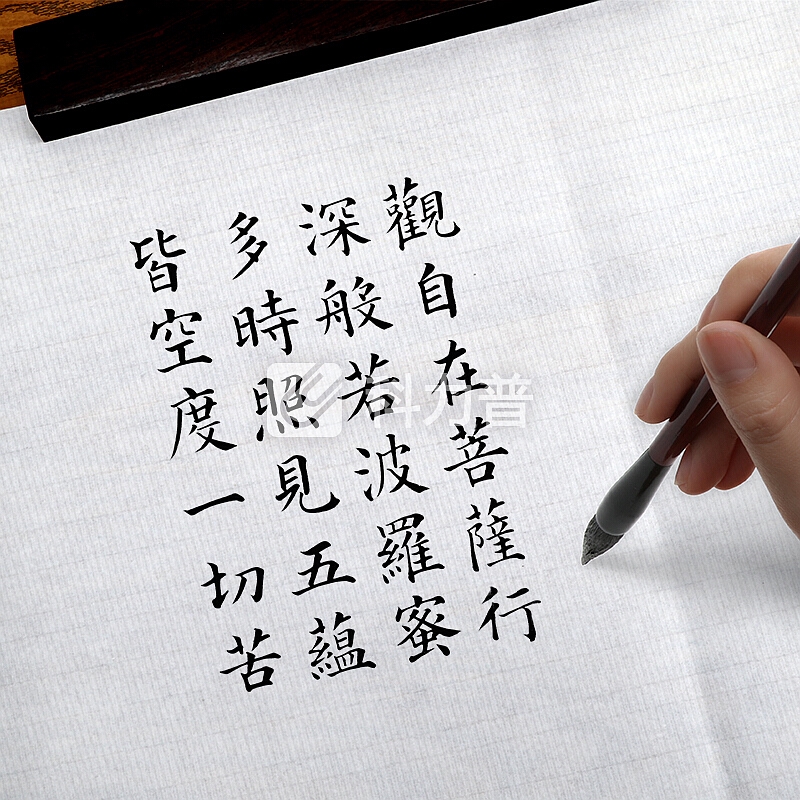 觀自在菩薩行
深般若波羅蜜
多時照見五蘊
皆空度一切苦
科力普